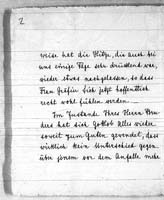 2
weise hat die Hitze, die auch bei
uns einige Tage sehr drückend war,
wieder etwas nachgelassen, so dass
Frau Gräfin sich jetzt hoffentlich
recht wohl fühlen werden.
Im Zustande Ihres Herrn Bru-
ders hat sich Gottlob Alles wieder
soweit zum Guten gewendet, dass
wirklich kein Unterschied gegen-
über jenem vor dem Anfalle mehr